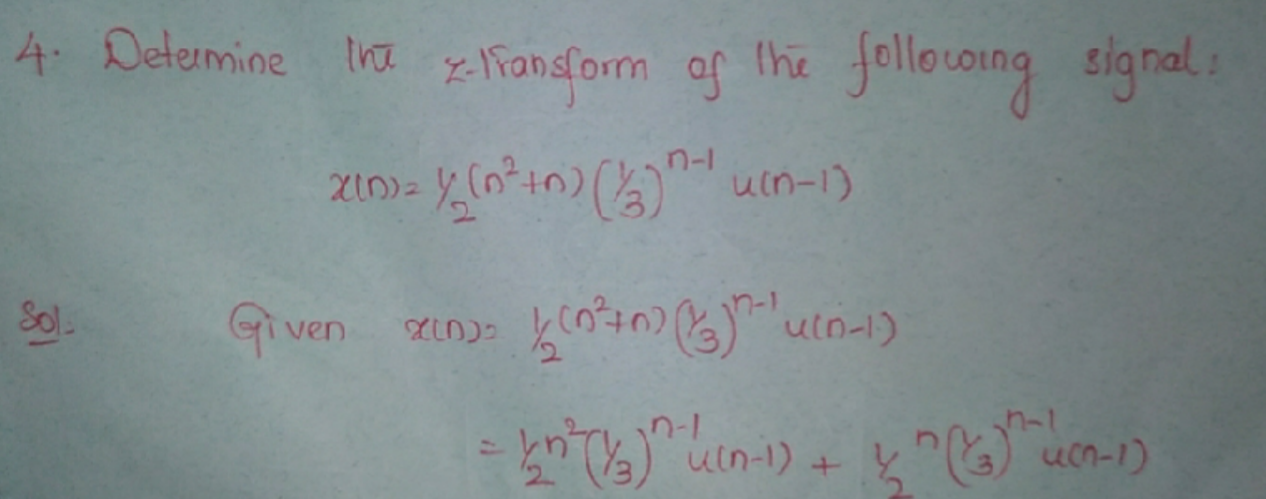 4. Determine the z-transform of the following signal:
x(n) = 1/2 (n²+n) (1/3)^(n-1) u(n-1)
Sol. Given x(n) = 1/2 (n²+n) (1/3)^(n-1) u(n-1)
= 1/2 n² (1/3)^(n-1) u(n-1) + 1/2 n (1/3)^(n-1) u(n-1)